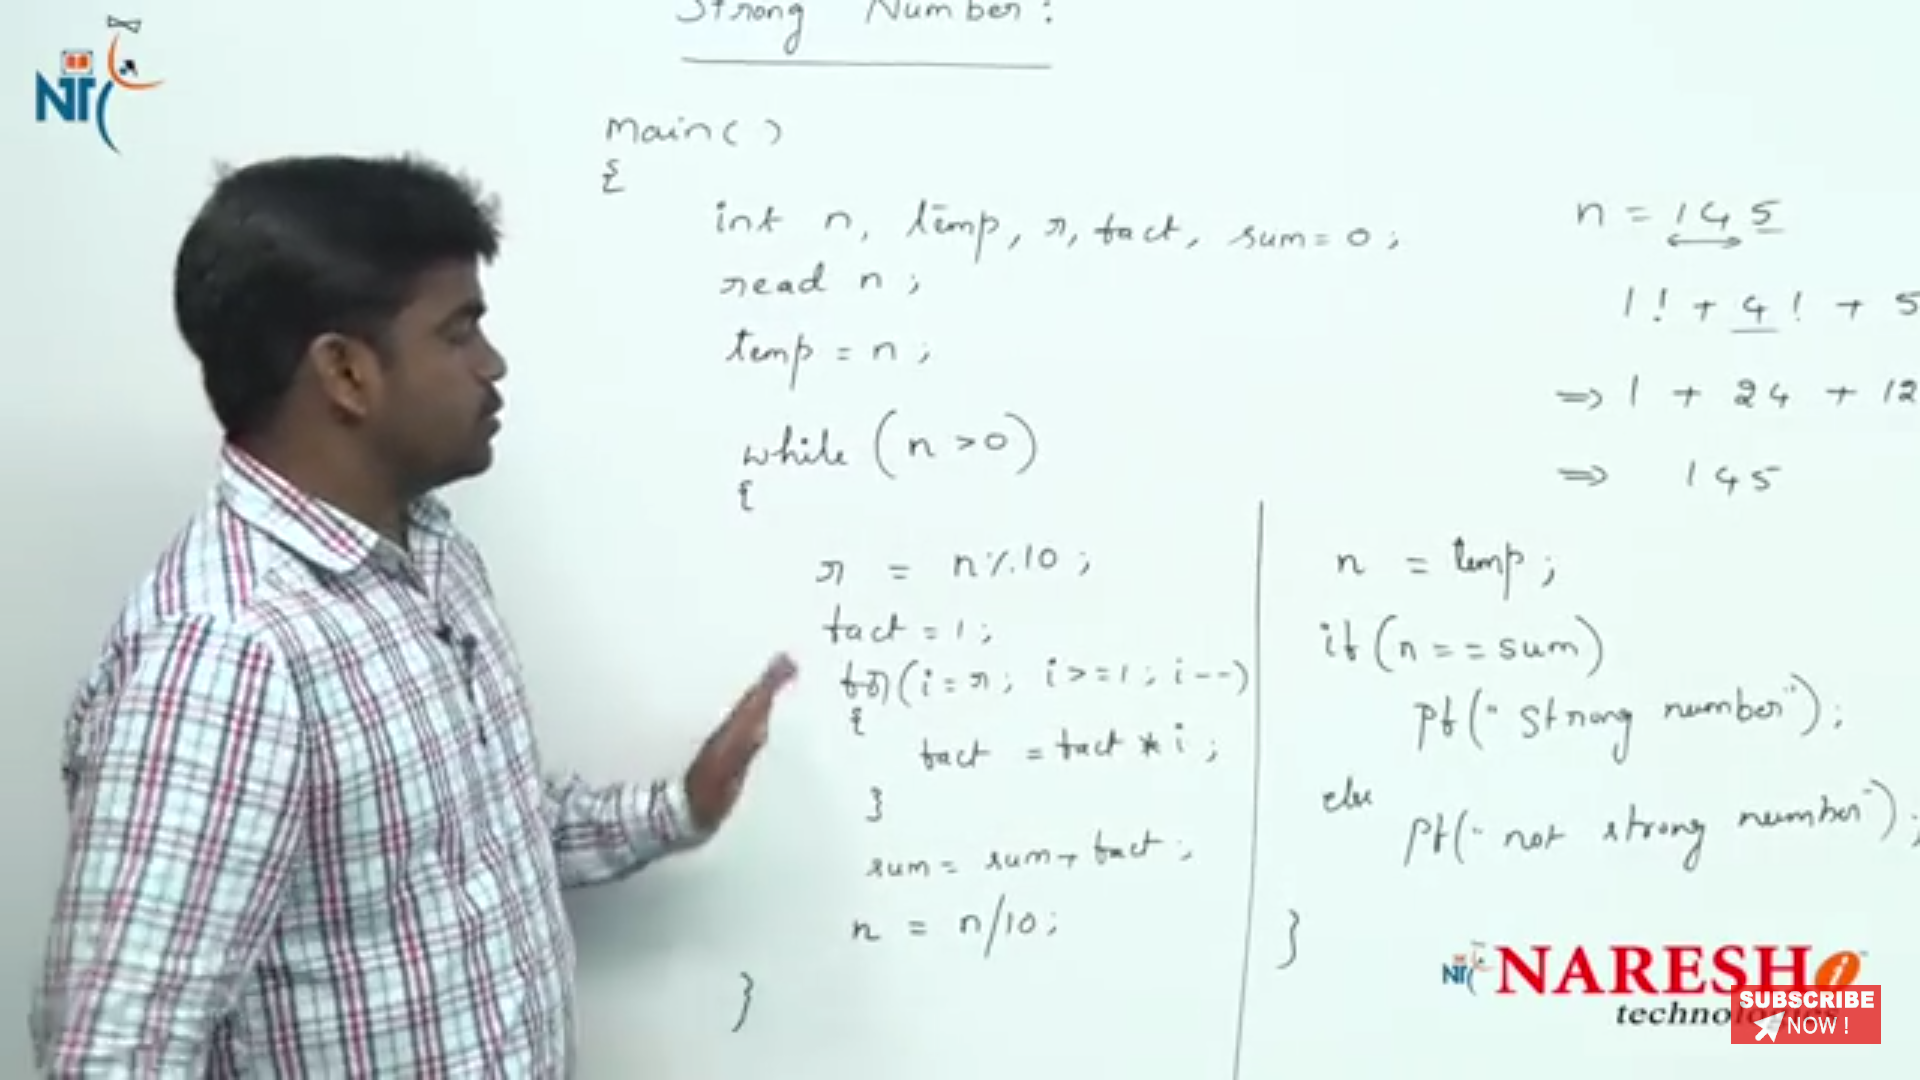 Strong Number:
NT
main()
{
int n, temp, r, fact, sum=0;
read n;
temp = n;
while (n >0)
{
r = n%10;
fact = 1;
for(i=r; i>=1; i--)
{
fact = fact * i;
}
sum = sum + fact;
n = n/10;
}
n = 145
1! + 4! + 5
=> 1 + 24 + 12
=> 145
n = temp;
if(n==sum)
pf("strong number");
else
pf("not strong number");
}
NT NARESH i
SUBSCRIBE
NOW !